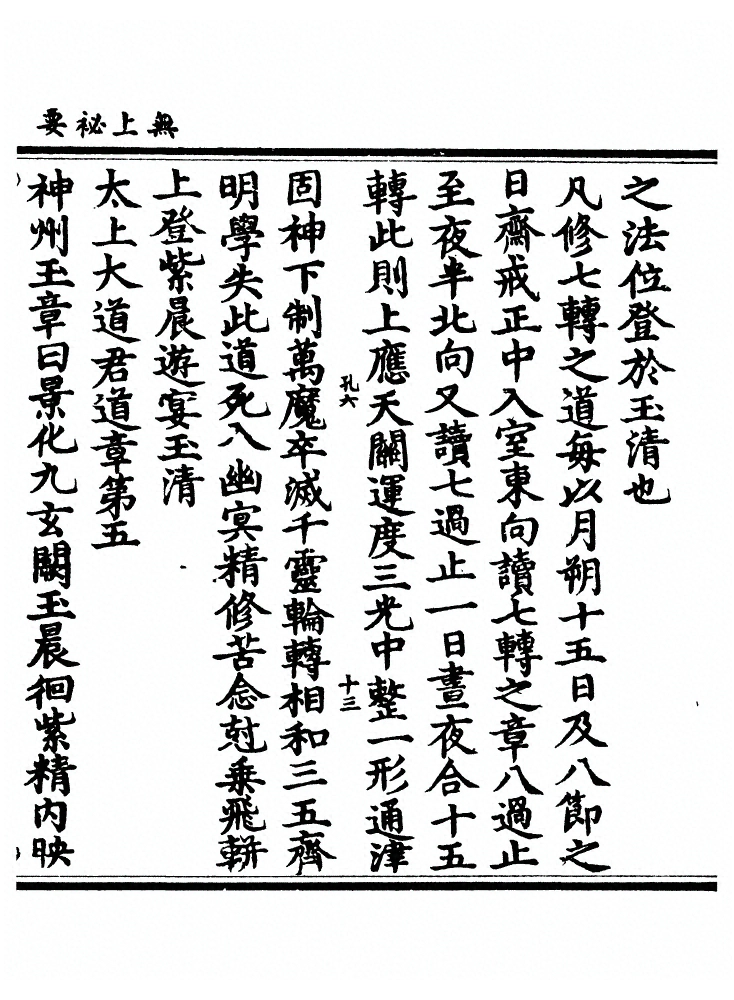 無上祕要
之法位登於玉清也
凡修七轉之道每以月朔十五日及八節之
日齋戒正中入室東向讀七轉之章八過止
至夜半北向又讀七過止一日晝夜合十五
轉此則上應天關運度三光中整一形通津
孔六
十三
固神下制萬魔卒滅千靈輪轉相和三五齊
明學失此道死入幽冥精修苦念尅乗飛輧
上登紫晨遊宴玉清
太上大道君道章第五
神州玉章曰景化九玄闕玉晨徊紫精内映